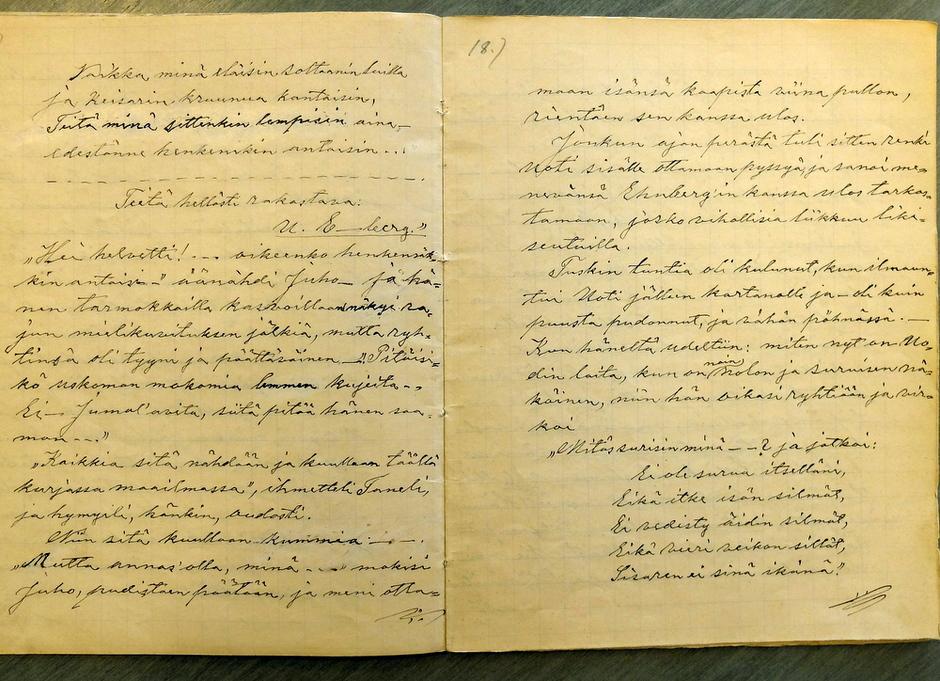 Vaikka minä eläisin sultaanin lailla
ja Keisarin kruunua kantaisin,
Teitä minä sittenkin lempisin aina,
edestänne henkenikin antaisin...
Teitä hellästi rakastava:
U. E—berg."
"Hei helvetti! --- oikeenko henkensäk-
kin antaisi-" äänähdi Juho— ja hä-
nen tarmokkailla kasvoillaan näkyi ra-
jun mielikuvituksen jälkiä, mutta ryh-
tinsä oli tyyni ja päättäväinen —"Pitäisi-
kö uskoman mokomia lemmen kujeita--
Ei— Jumal'avita, siitä pitää hänen saa-
man ---"
"Kaikkia sitä nähdään ja kuullaan täällä
kurjassa maailmassa", ihmetteli Taneli,
ja hymyili, hänkin, oudosti.
Niin sitä kuullaan kummia —.
"Mutta annas' olla, minä ---" mokisi
Juho, pudistaen päätään, ja meni otta-
18.)
maan isänsä kaapista viina pullon,
rientäen sen kanssa ulos.
Jonkun ajan perästä tuli sitten renki
Uoti sisälle ottamaan pyssyä, ja sanoi me-
nevänsä Ehnberg'in kanssa ulos tarkas-
tamaan, josko vihollisia liikkuu liki-
seutuilla.
Tuskin tuntia oli kulunut, kun ilmaan-
tui Uoti jälleen kartanolle ja — oli kuin
puusta pudonnut, ja vähän pöhnässä. —
Kun häneltä udeltiin: miten nyt on Uo-
din laita, kun on noin nolon ja suruisen nä-
köinen, niin hän oikasi ryhtiään ja vir-
koi
"Mitäs surisin minä — -? ja jatkoi:
Ei ole surua itselläni,
Eikä itke isän silmät,
Ei vedisty äidin silmät,
Eikä vieri veikon sillat,
Sisaren ei sinä ikänä."